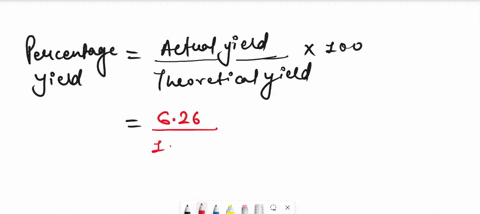 Percentage yield = Actual yield / Theoretical yield × 100
= 6.26 / 1.